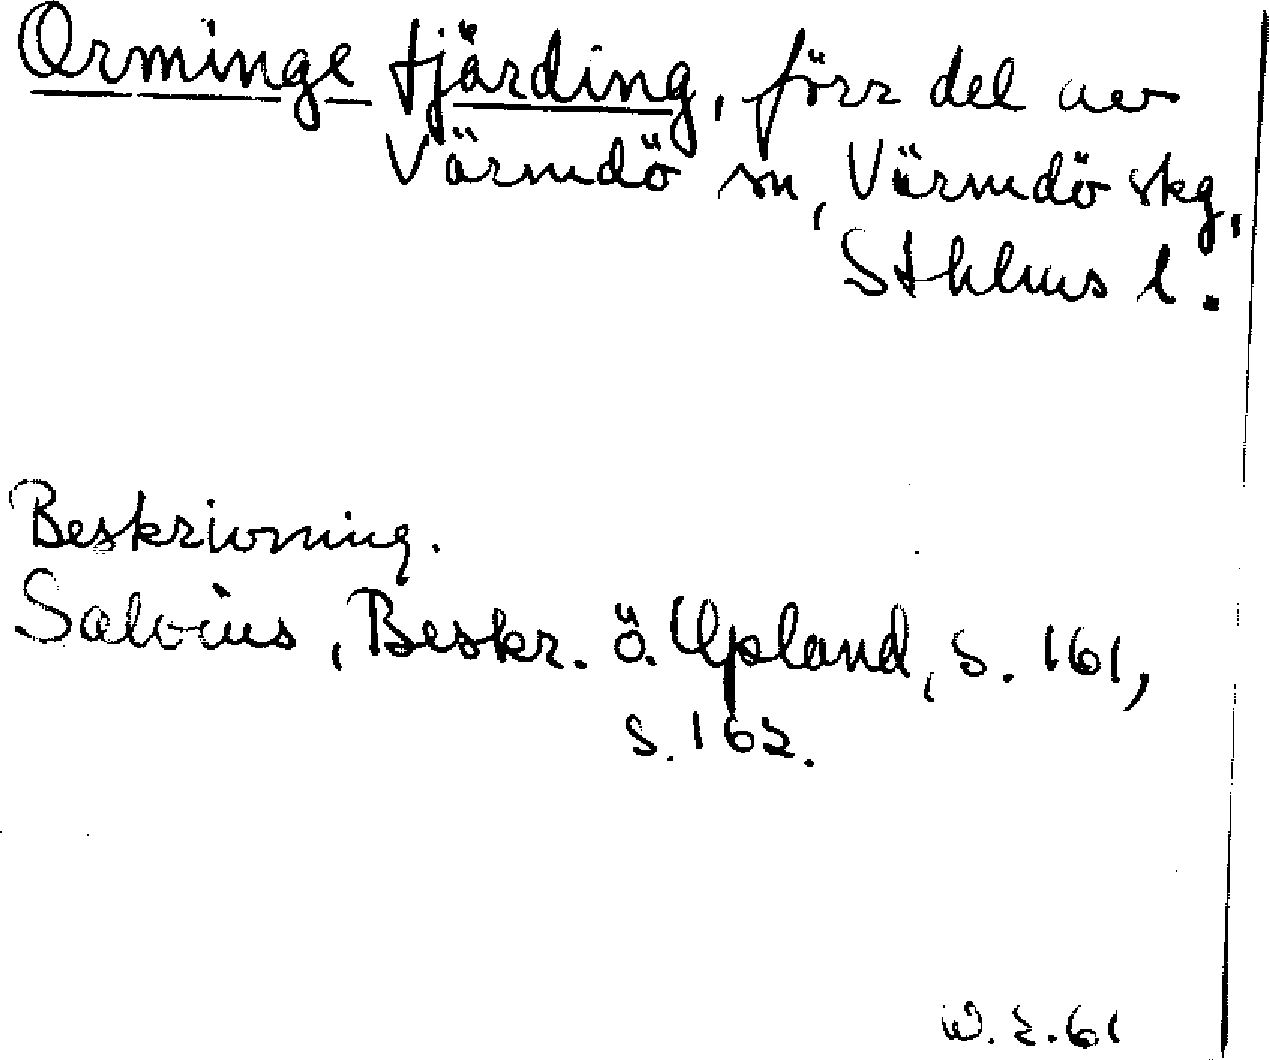 Orminge fjärding, förr del av
Värmdö sn, Värmdö skg,
Sthlms l.
Beskrivning.
Salvius, Beskr. ö. Upland, s. 161,
s. 162.
W. E. 61